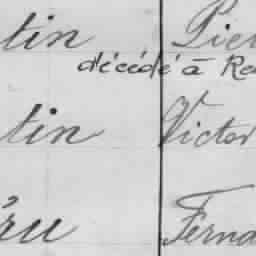 tin Pier
décédé à Re
tin Victor
ru Ferna